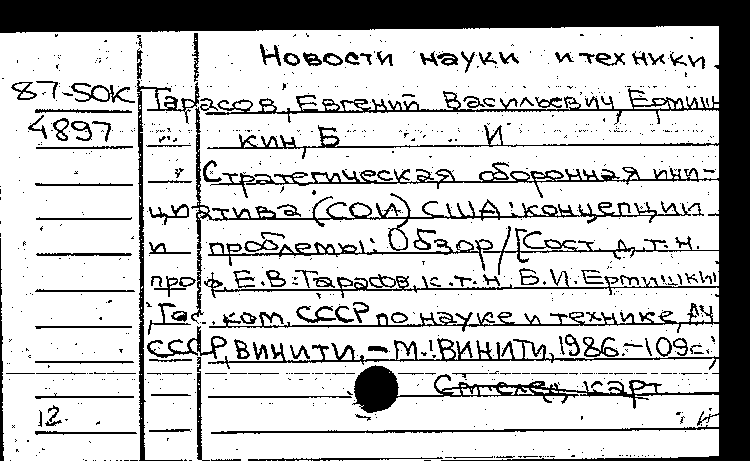 Новости науки и техники.
87-5ОК Тарасов, Евгений Васильевич, Ермиш
4897 кин, Б И
Стратегическая оборонная ини-
циатива (СОИ) США: концепции
и проблемы: Обзор/[Сост. д.т.н.
проф. Е.В. Тарасов, к.т.н. Б.И. Ермишкин
, Гос. ком. СССР по науке и технике, АН
СССР, ВИНИТИ. – М.: ВИНИТИ, 1986. – 109с.;
См. след. карт
12